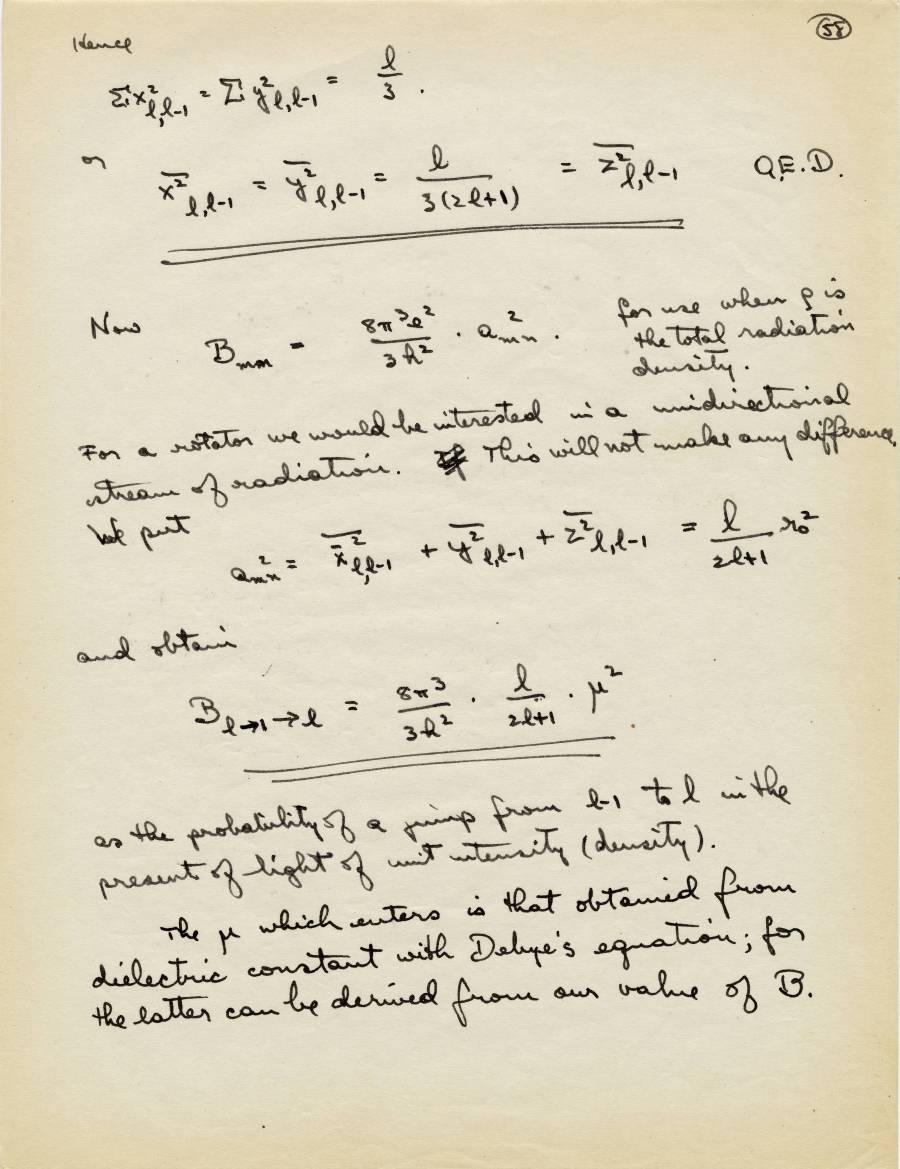 58
Hence
Σx²ₗ,ₗ₋₁ = Σy²ₗ,ₗ₋₁ = l/3 .
or
x̅²ₗ,ₗ₋₁ = y̅²ₗ,ₗ₋₁ = l/3(2l+1) = z̅²ₗ,ₗ₋₁ Q.E.D.
Now
Bₘₙ = 8π³e²/3h² · a²ₘₙ .
for use when ρ is
the total radiation
density.
For a rotator we would be interested in a unidirectional
stream of radiation. This will not make any difference.
We put
a²ₘₙ = x̅²ₗ,ₗ₋₁ + y̅²ₗ,ₗ₋₁ + z̅²ₗ,ₗ₋₁ = l/2l+1 r₀²
and obtain
B l→1→l = 8π³/3h² · l/2l+1 · μ²
as the probability of a jump from l-1 to l in the
present of light of unit intensity (density).
The μ which enters is that obtained from
dielectric constant with Debye's equation; for
the latter can be derived from our value of B.